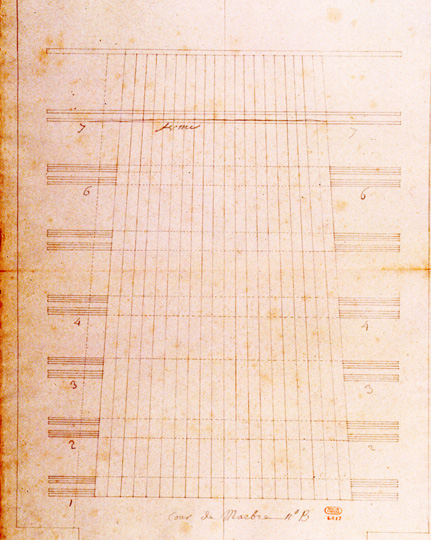 7 ferme 7
6 6
4 4
3 3
2 2
1
Cour de Marbre nº B